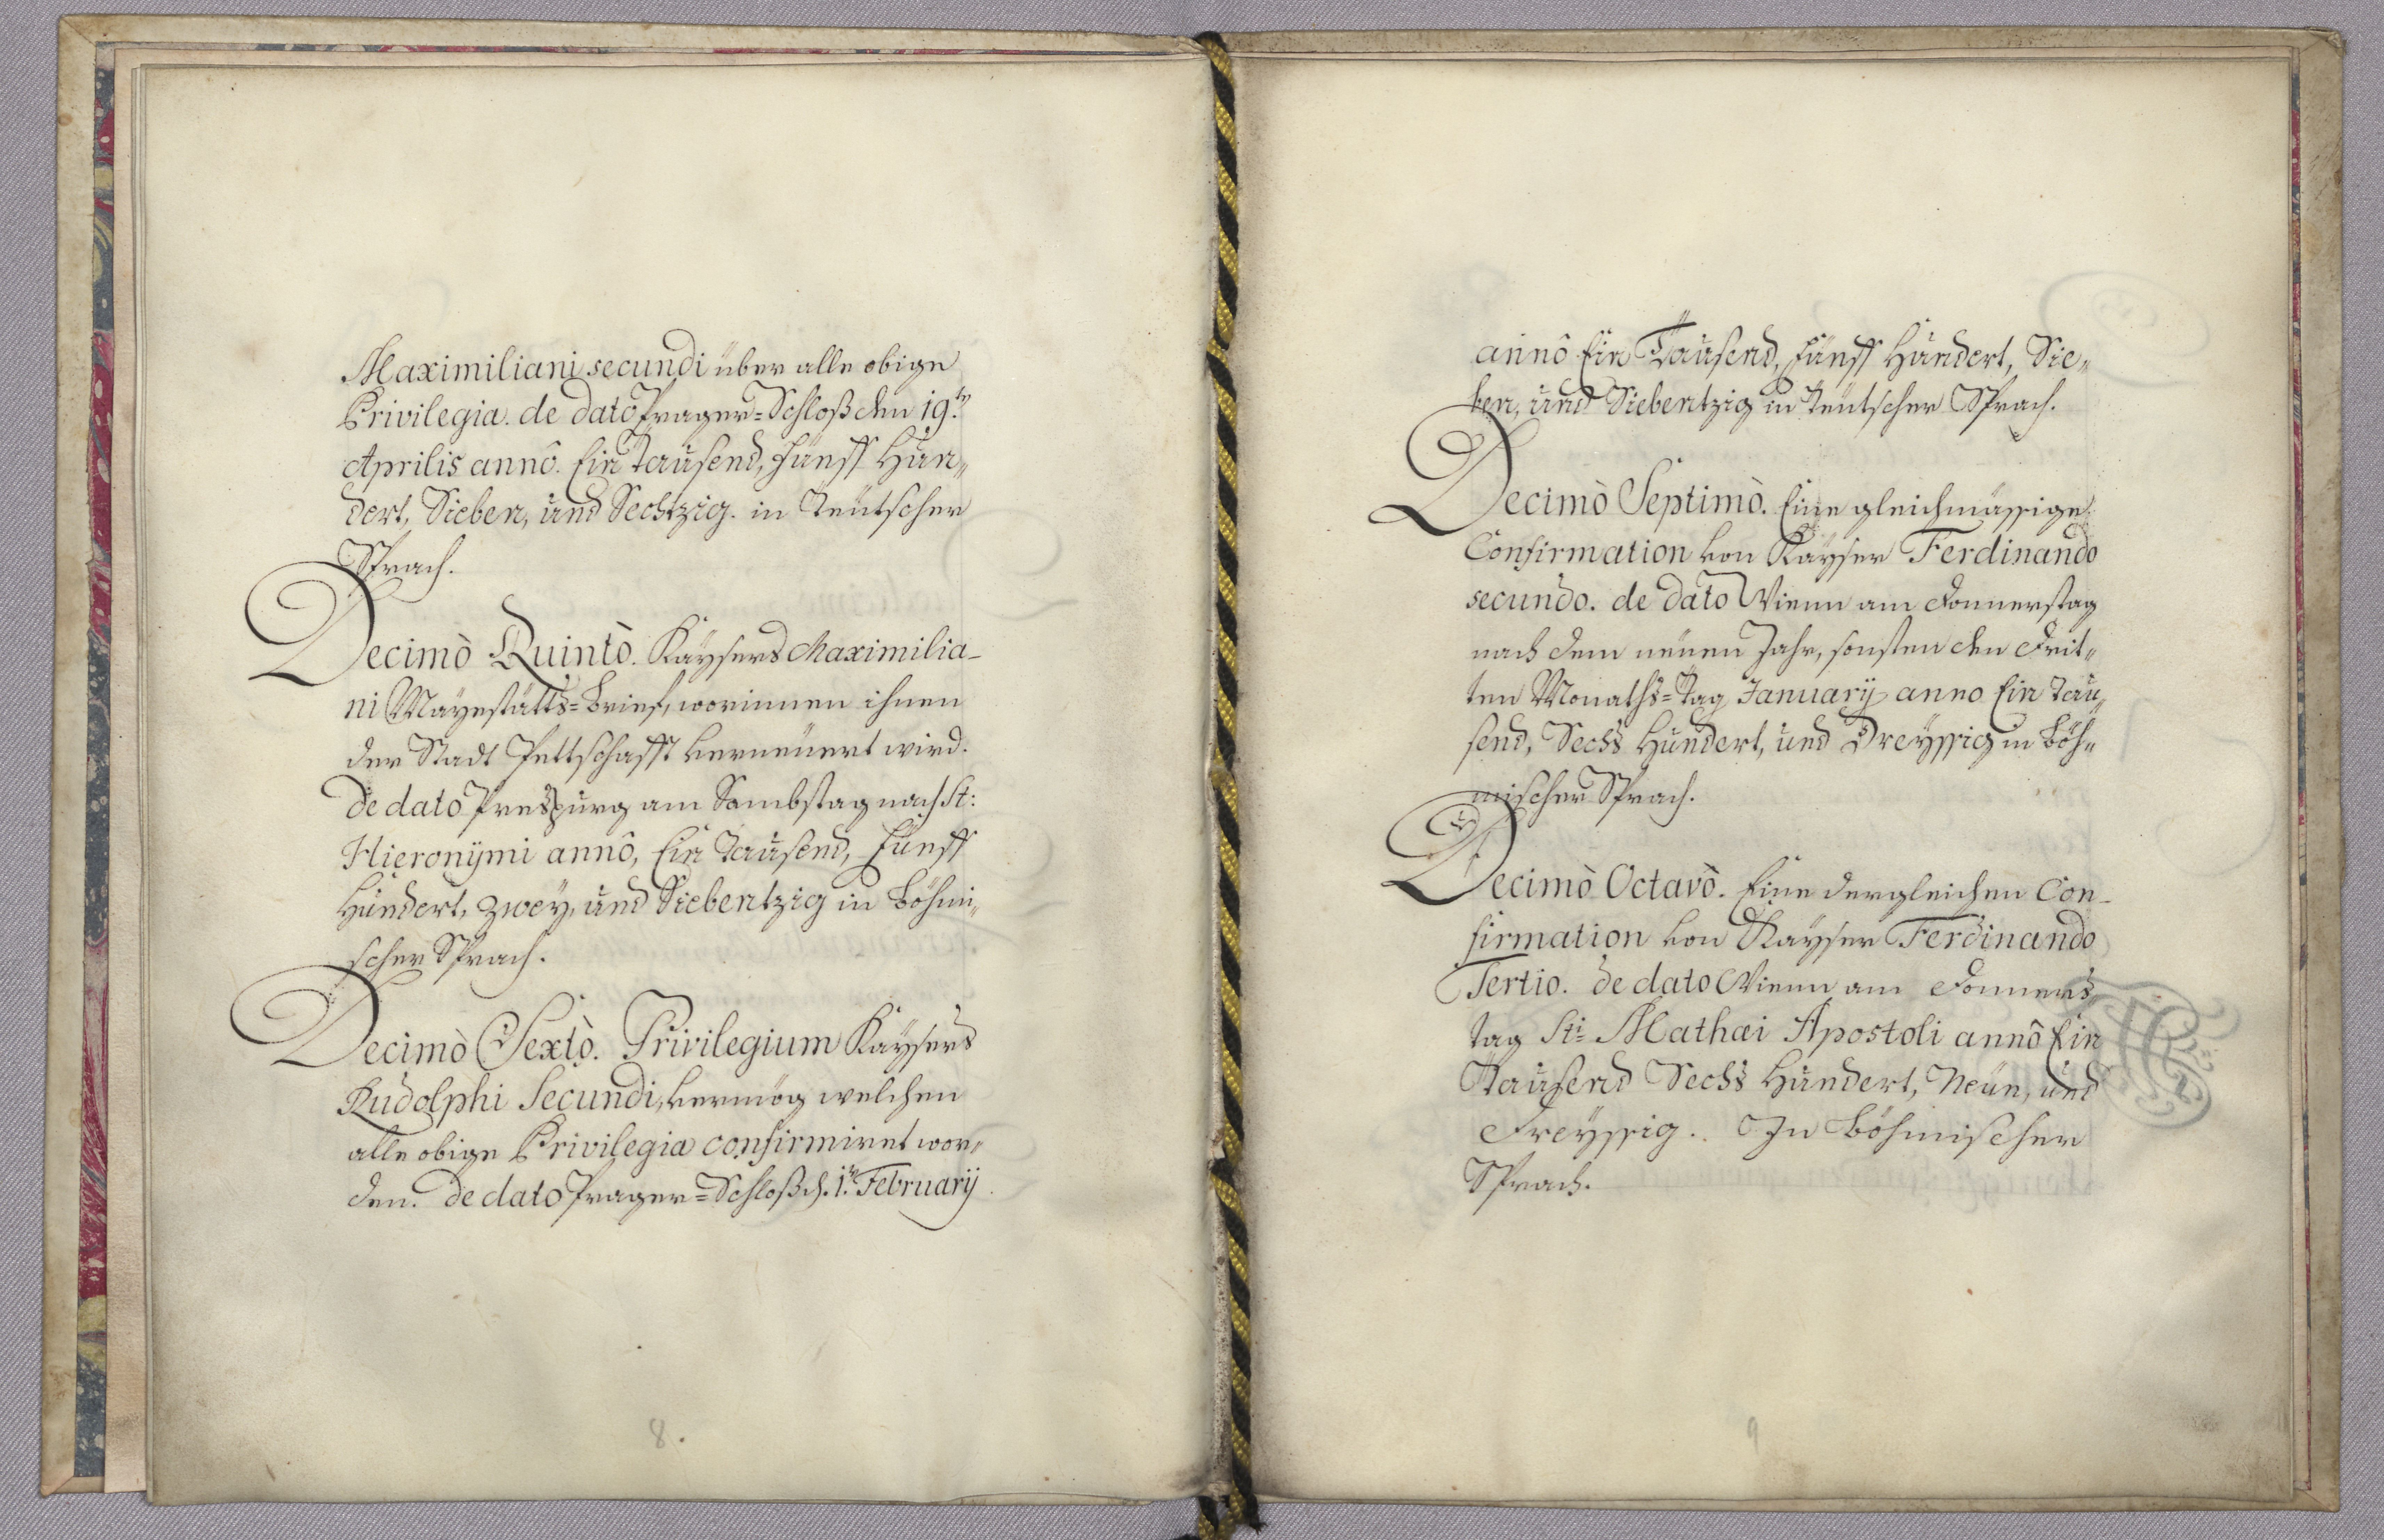 Maximiliani secundi über alle obige
Privilegia. de dato Prager=Schloß den 19.ten
Aprilis annô. Ein Tausend, Fünff Hun„
dert, Sieben, und Sechtzig. in Teutscher
Sprach.
Decimò Quintò. Kaysers Maximilia-
ni Mayestätts=Brief, worinnen ihnen
der Stadt Pettschafft verneuert wird.
De dato Prespurg am Sambstag nach St:
Hieronÿmi annô, Ein Tausend, Fünff
Hundert, Zwey, und Siebentzig in Böhmi„
scher Sprach.
Decimò Sextò. Privilegium Kaysers
Rudolphi Secundi, vermög welchen
alle obige Privilegia confirmiret wor„
den. De dato Prager=Schloß d. 1.ten Februarÿ
8.
annô Ein Tausend, Fünff Hundert, Sie„
ben, und Siebentzig in Teutscher Sprach.
Decimò Septimò. Eine gleichmässige
Confirmation von Kayser Ferdinando
secundo. de dato Wienn am Donnerstag
nach dem neuen Jahr, sonsten den Drit„
ten Monaths=Tag Januarÿ anno Ein Tau„
send, Sechs Hundert, und Dreyssig in Böh„
mischer Sprach.
Decimò Octavò. Eine dergleichen Con-
firmation von Kayser Ferdinando
Tertio. De dato Wienn am Donners„
tag Sti= Mathæi Apostoli annô Ein
Tausend Sechs Hundert, Neun, und
Dreyssig. In Böhmischer
Sprach.
9